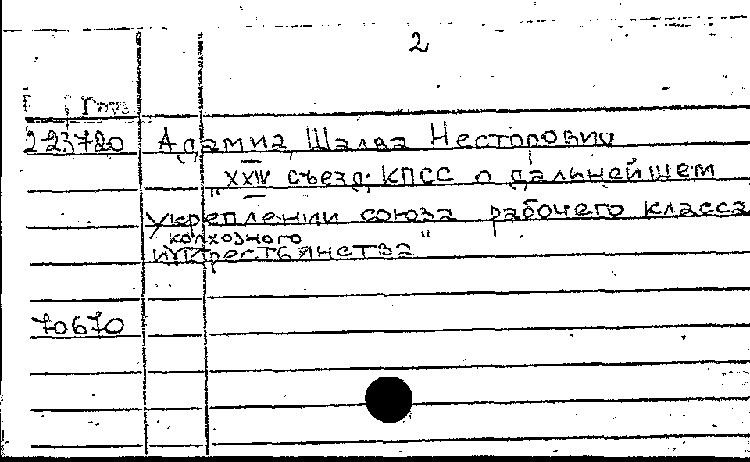 2
Груз
223720 Адамиа Шалва Несторович
„XXIV съезд КПСС о дальнейшем
укреплении союза рабочего класса
колхозного
и крестьянства"
70670